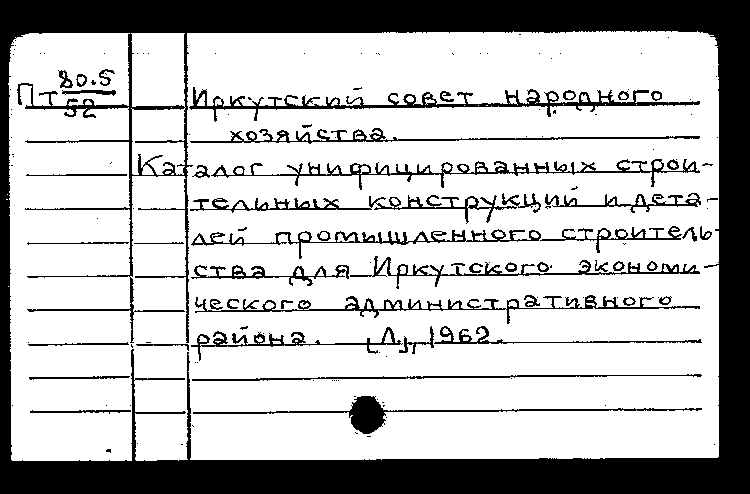 Пт 80.5/52 Иркутский совет народного
хозяйства.
Каталог унифицированных строи-
тельных конструкций и дета-
лей промышленного строитель-
ства для Иркутского экономи-
ческого административного
района. [Л.], 1962.